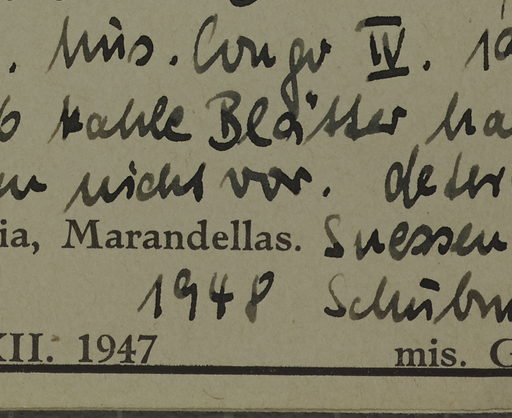 . Miss. Congo IV. 19
b kahle Blätter ha
en nicht vor. deter
ia, Marandellas. Suessen
1948 Schub
XII. 1947 mis. G